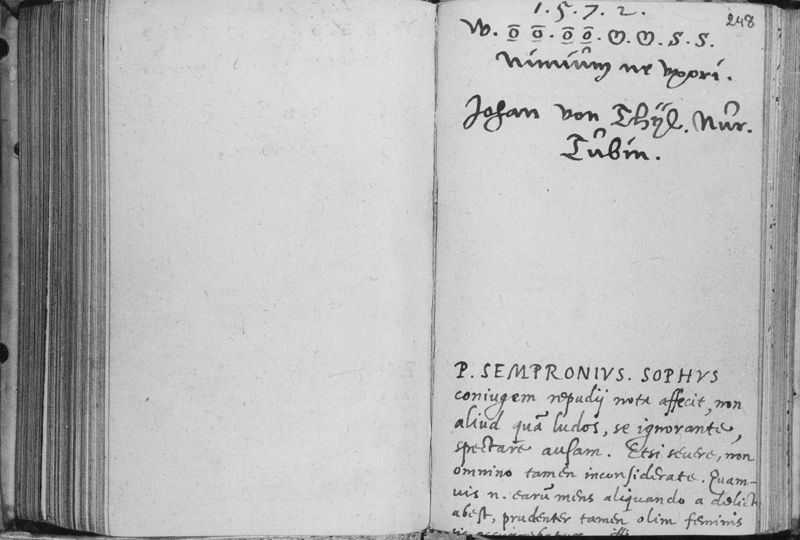 248
1. 5. 7. 2.
W. o̲̅ o̲̅. o̲̅ o̲̅. ♡. ♡. S. S.
Nimiùm ne vxori.
Johan von Thÿl. Nŭr.
Tŭbin.
P. SEMPRONIVS. SOPHVS
coniugem repudij nota affecit, non
aliud quã ludos, se ignorante,
spectare ausam. Etsi seuere, non
omnino tamen inconsiderate. Quam-
uis n. earũ mens aliquando a delict
abest, prudenter tamen olim feminis